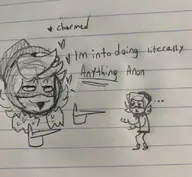 charmed
I'm into doing literally
Anything Anon
...